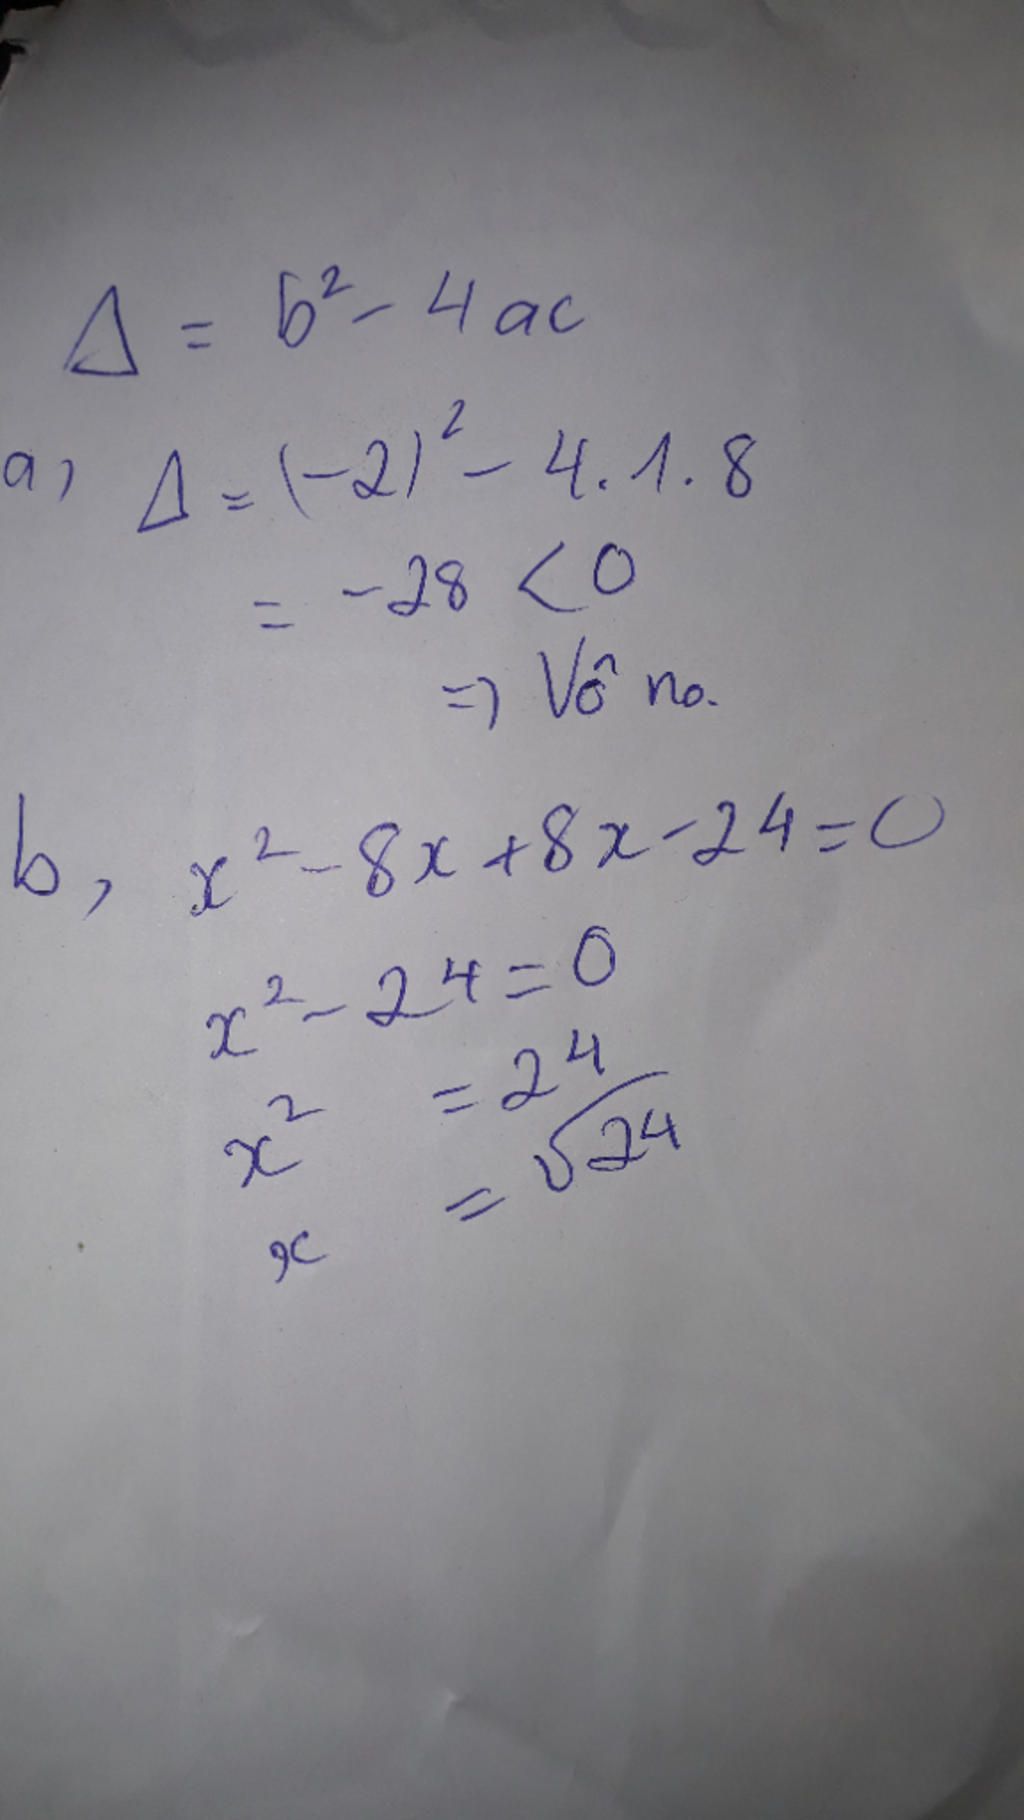 Δ = b² - 4ac
a, Δ = (-2)² - 4.1.8
= -28 < 0
=> Vô no.
b, x² - 8x + 8x - 24 = 0
x² - 24 = 0
x² = 24
x = √24